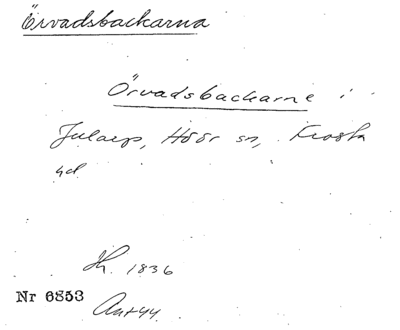 Örvadsbackarna
Örvadsbackarne i
Julaep, Höör sn, Frosta
hd
Th. 1836
Nr 6853
Ant 44